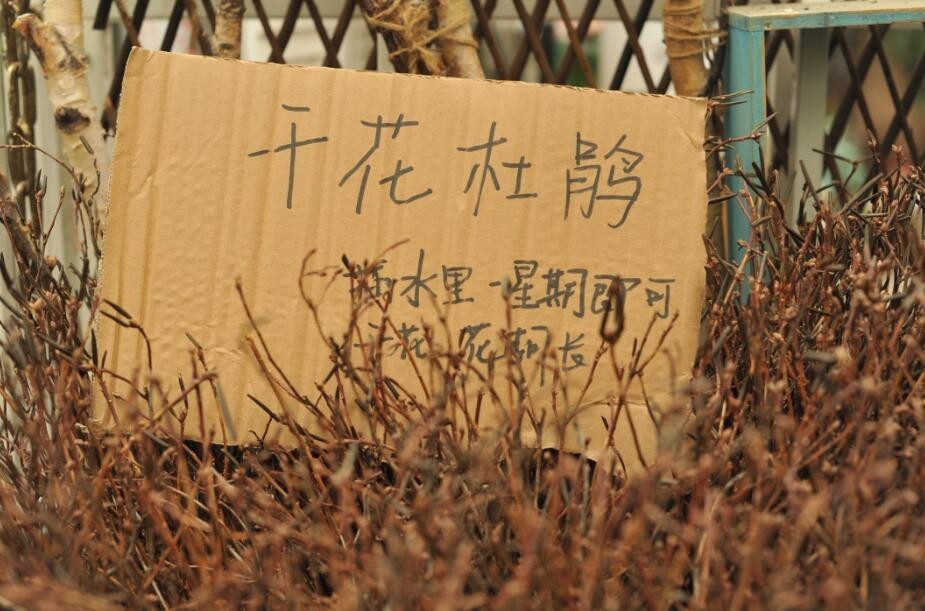 干花杜鹃
插水里一星期即可
开花 花期长